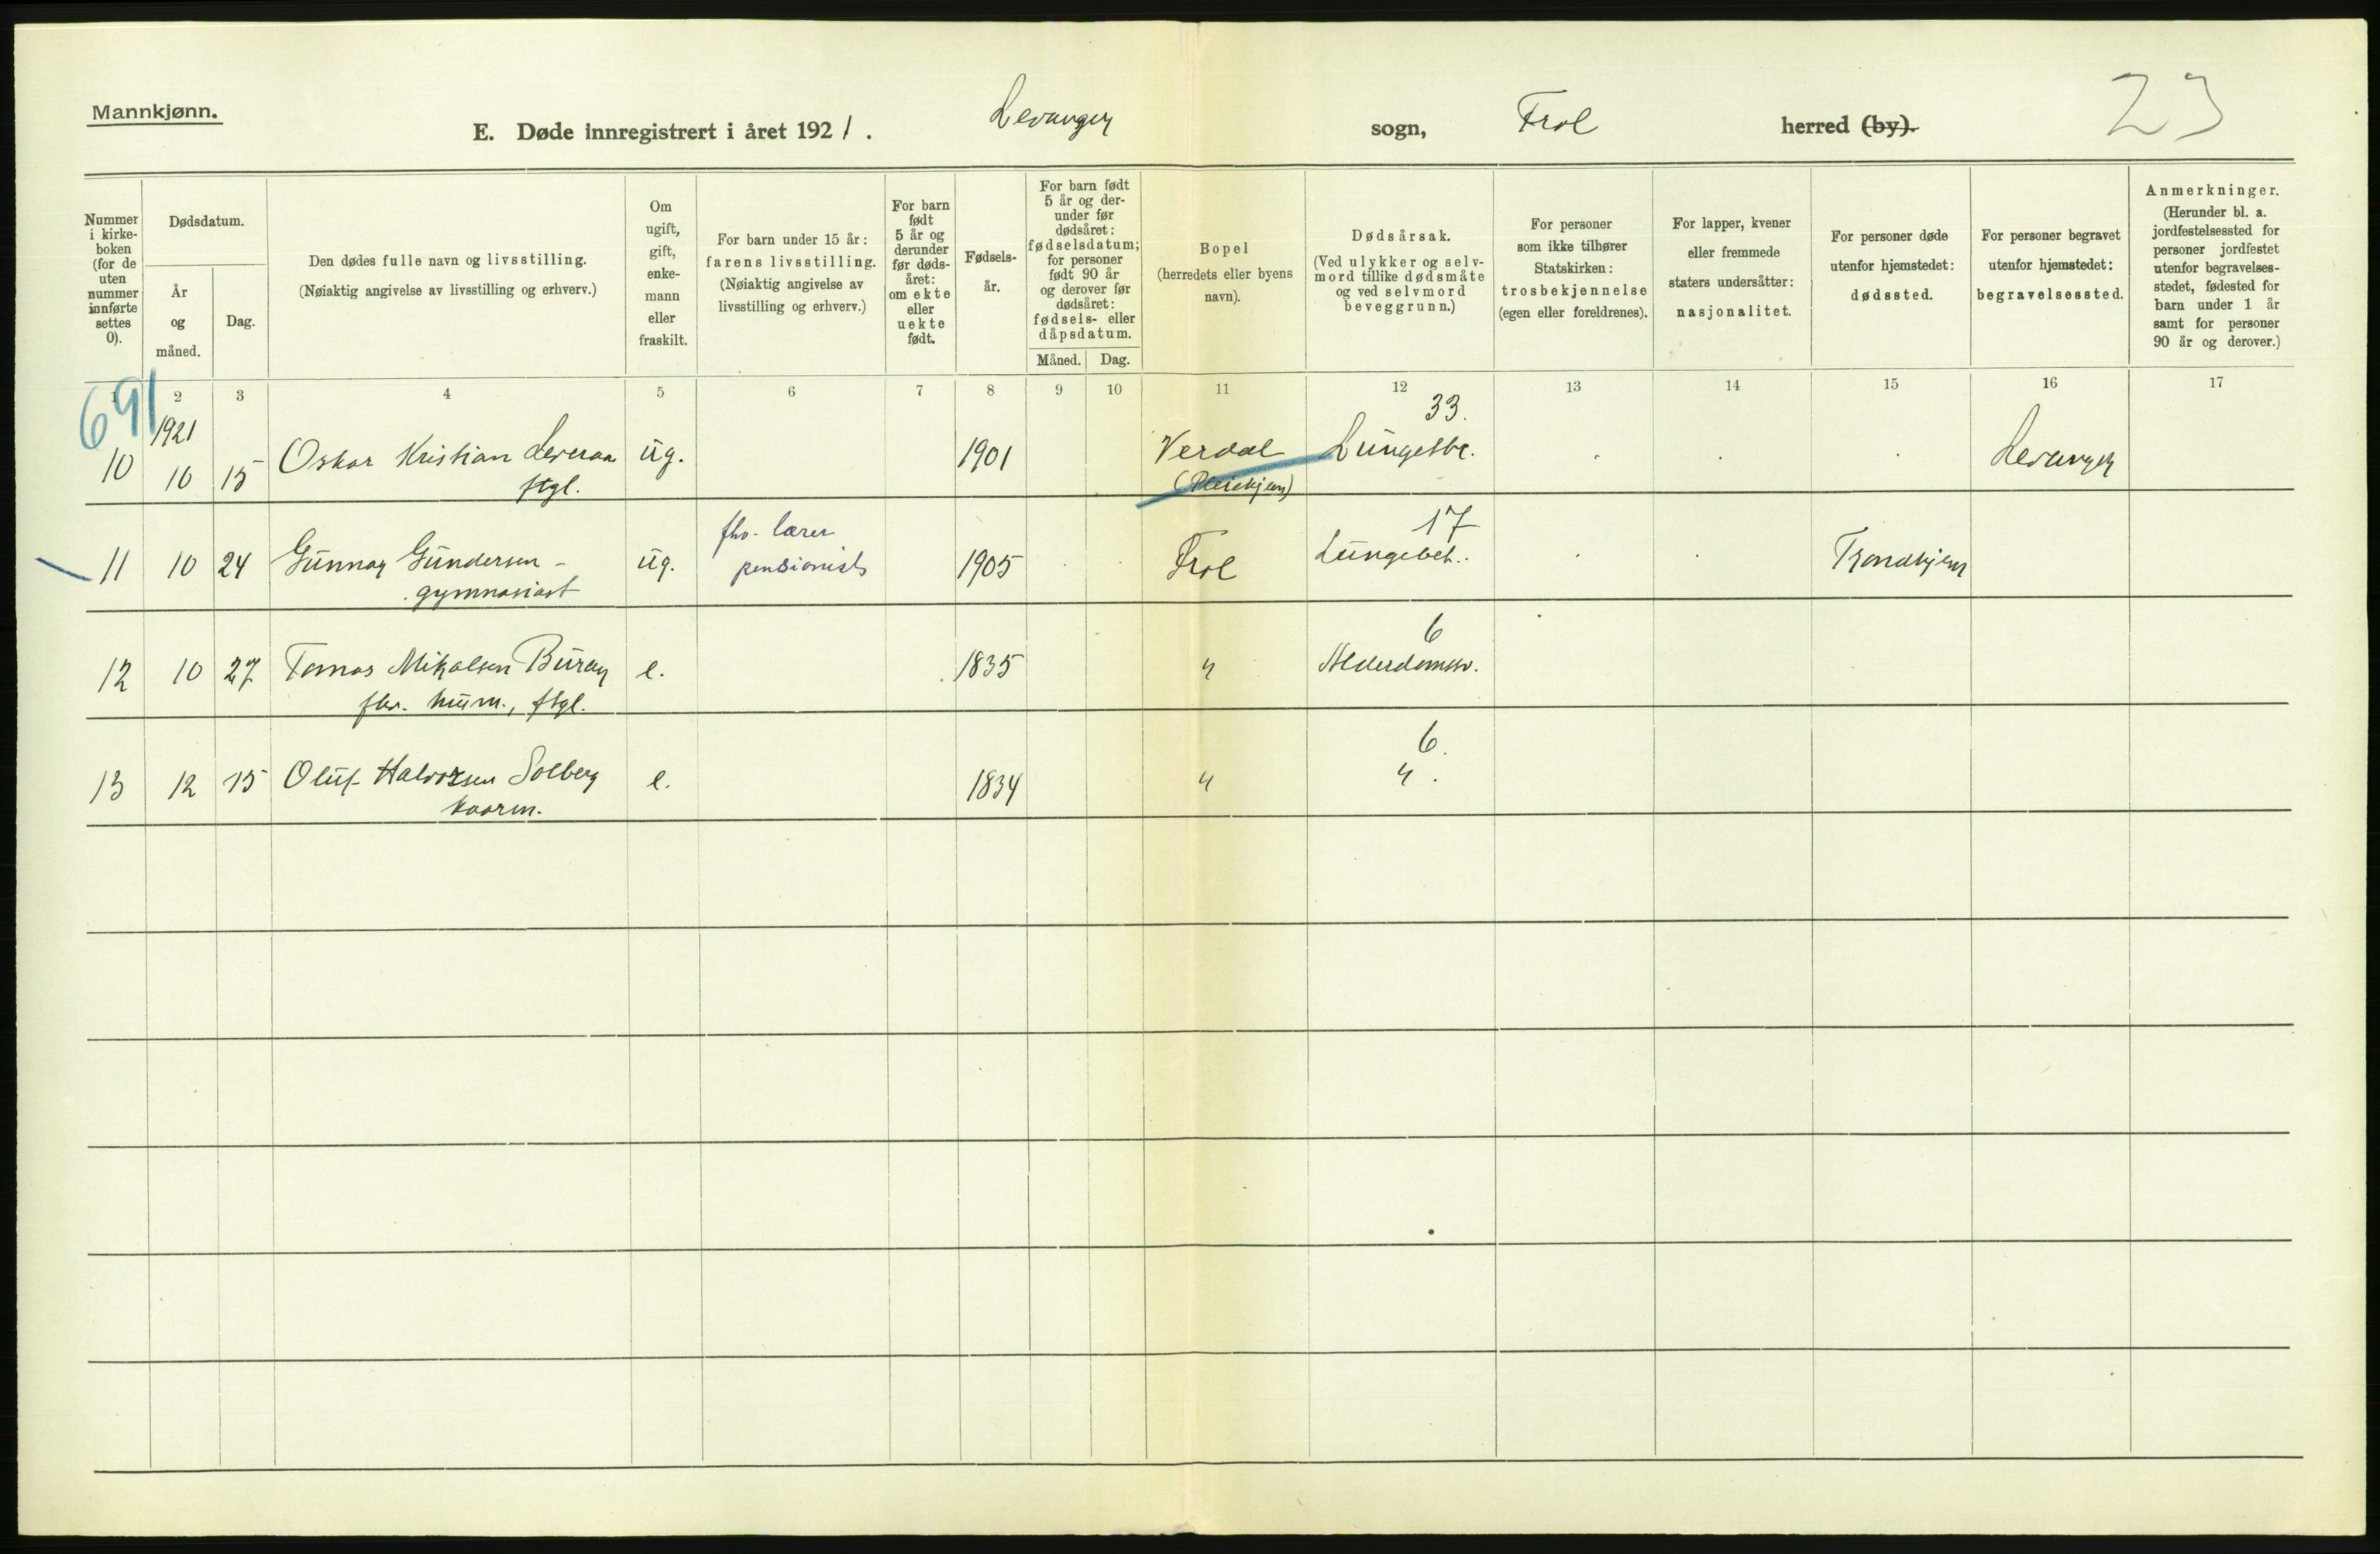 Mannkjønn.
E. Døde innregistrert i året 1921. Levanger sogn, Frol herred (by).
23
Nummer i kirke-boken (for de uten nummer innførte settes 0).
Dødsdatum.
År og måned.
Dag.
Den dødes fulle navn og livsstilling.
(Nøiaktig angivelse av livsstilling og erhverv.)
Om ugift, gift, enke-mann eller fraskilt.
For barn under 15 år: farens livsstilling.
(Nøiaktig angivelse av livsstilling og erhverv.)
For barn født 5 år og derunder før døds-året: om ekte eller uekte født.
Fødsels-år.
For barn født 5 år og der-under før dødsåret: fødselsdatum; for personer født 90 år og derover før dødsåret: fødsels- eller dåpsdatum.
Måned. Dag.
Bopel
(herredets eller byens navn).
Dødsårsak.
(Ved ulykker og selv-mord tillike dødsmåte og ved selvmord beveggrunn.)
For personer som ikke tilhører Statskirken: trosbekjennelse (egen eller foreldrenes).
For lapper, kvener eller fremmede staters undersåtter: nasjonalitet.
For personer døde utenfor hjemstedet: dødssted.
For personer begravet utenfor hjemstedet: begravelsessted.
Anmerkninger.
(Herunder bl. a. jordfestelsessted for personer jordfestet utenfor begravelses-stedet, fødested for barn under 1 år samt for personer 90 år og derover.)
1 2 3 4 5 6 7 8 9 10 11 12 13 14 15 16 17
691
1921
33.
10 10 15 Oskar Kristian Leveraa ug. 1901 Verdal Lungetbc. Levanger
ftgl. (Pleiehjem)
fhv. lærer 17
11 10 24 Gunnar Gundersen - ug. pensionist 1905 Frol Lungebet. Trondhjem
gymnasiast
6
12 10 27 Tomas Mikalsen Buran e. 1835 " Alderdomsv.
fhv. husm., ftgl.
6.
13 12 15 Oluf Halvorsen Solberg e. 1834 " ".
kaarm.